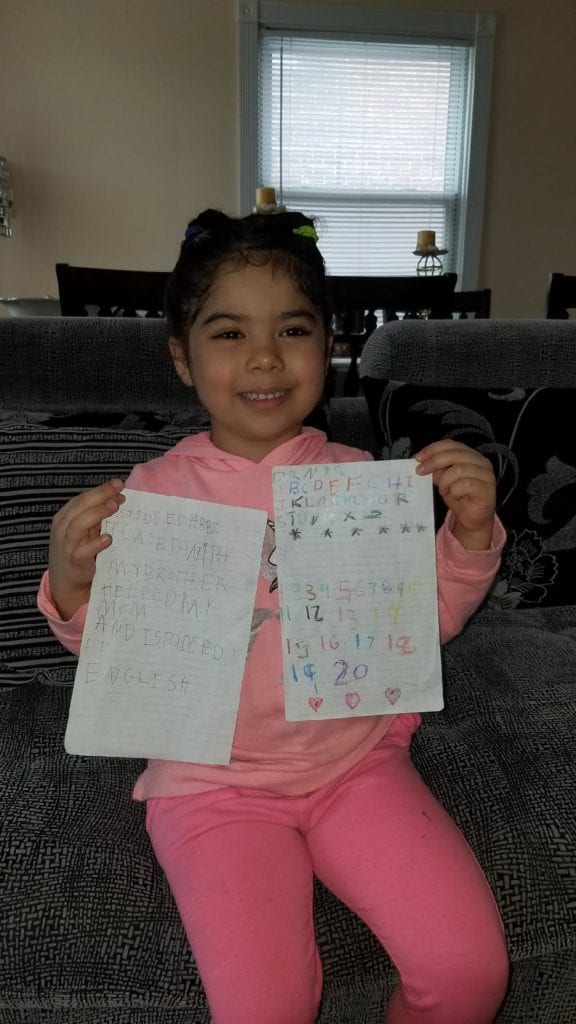 I PLAYED WITH
MY BROTHER
HELPED MY
MOM
AND I STUDEED
ENGLISH
DANYA
BCDEFGHI
JKL
STUV X
2 3 4 5 6 7 8 9
11 12 13 14
15 16 17 18
19 20